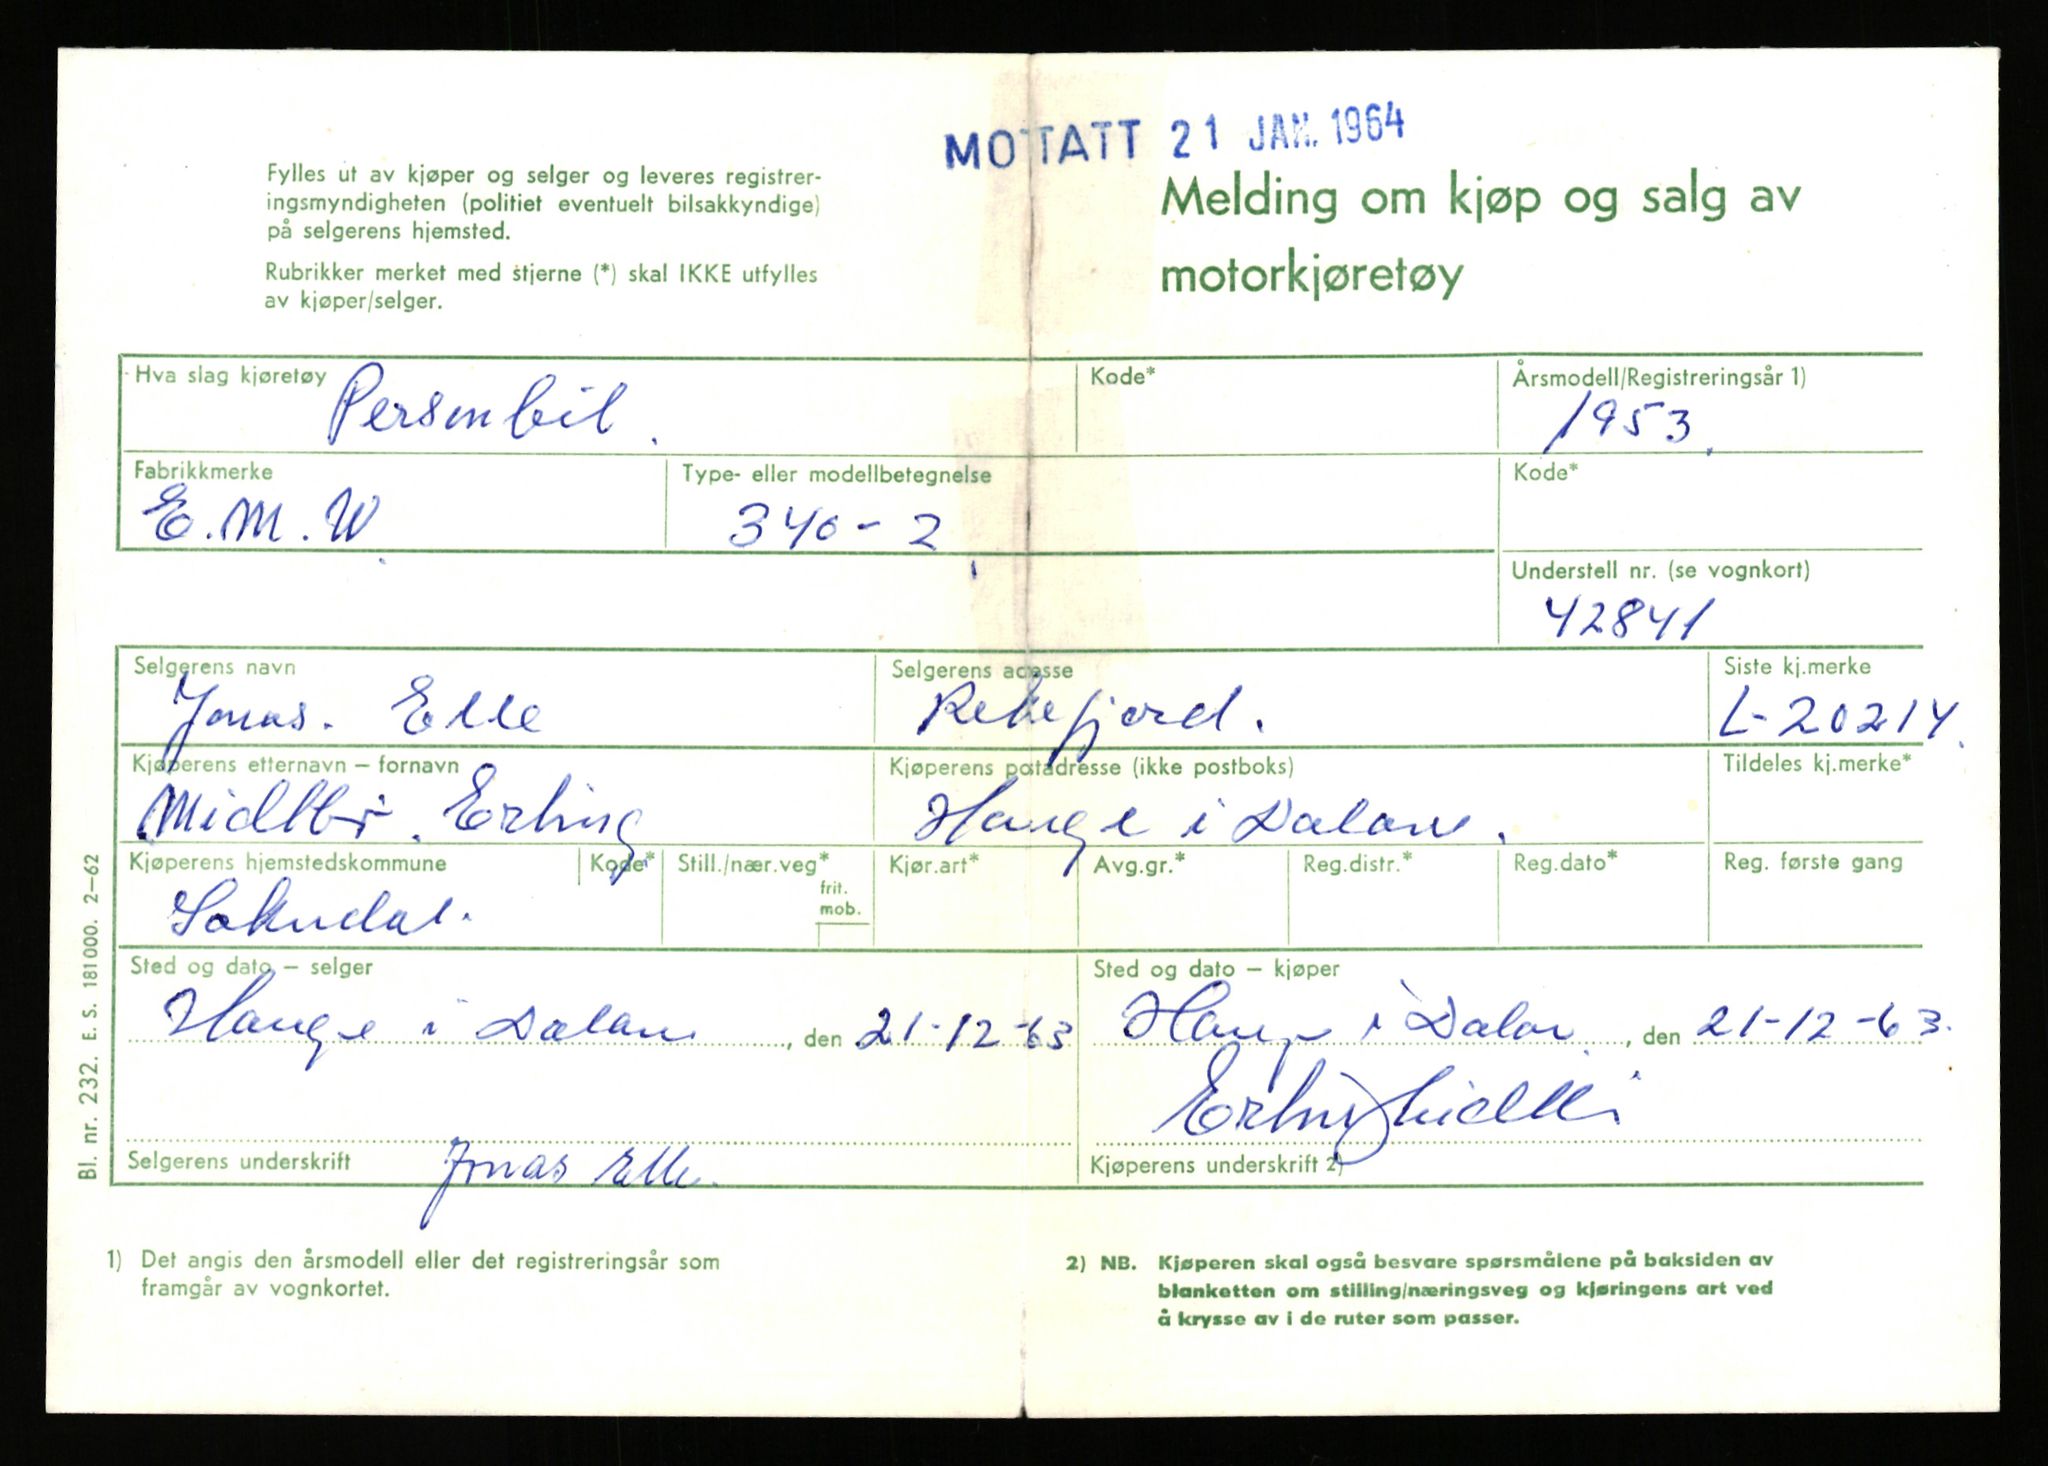 MOTTATT 21 JAN. 1964
Fylles ut av kjøper og selger og leveres registrer-
ingsmyndigheten (politiet eventuelt bilsakkyndige)
på selgerens hjemsted.
Rubrikker merket med stjerne (*) skal IKKE utfylles
av kjøper/selger.
Melding om kjøp og salg av
motorkjøretøy
Hva slag kjøretøy
Personbil.
Kode*
Årsmodell/Registreringsår 1)
1953.
Fabrikkmerke
E.M.W.
Type- eller modellbetegnelse
340-2
Kode*
Understell nr. (se vognkort)
42841
Selgerens navn
Jonas. Elle
Selgerens adresse
Rekefjord.
Siste kj.merke
L-20214.
Kjøperens etternavn – fornavn
Midtbø. Erling
Kjøperens postadresse (ikke postboks)
Hauge i Dalane.
Tildeles kj.merke*
Kjøperens hjemstedskommune
Sokndal.
Kode*
Still./nær.veg*
frit.
mob.
Kjør.art*
Avg.gr.*
Reg.distr.*
Reg.dato*
Reg. første gang
Sted og dato – selger
Hauge i Dalane, den 21-12-63
Sted og dato – kjøper
Hauge i Dalan, den 21-12-63.
Selgerens underskrift
Jonas Elle.
Erling Midtbø
Kjøperens underskrift 2)
1) Det angis den årsmodell eller det registreringsår som
framgår av vognkortet.
2) NB. Kjøperen skal også besvare spørsmålene på baksiden av
blanketten om stilling/næringsveg og kjøringens art ved
å krysse av i de ruter som passer.
Bl. nr. 232. E. S. 181000. 2–62